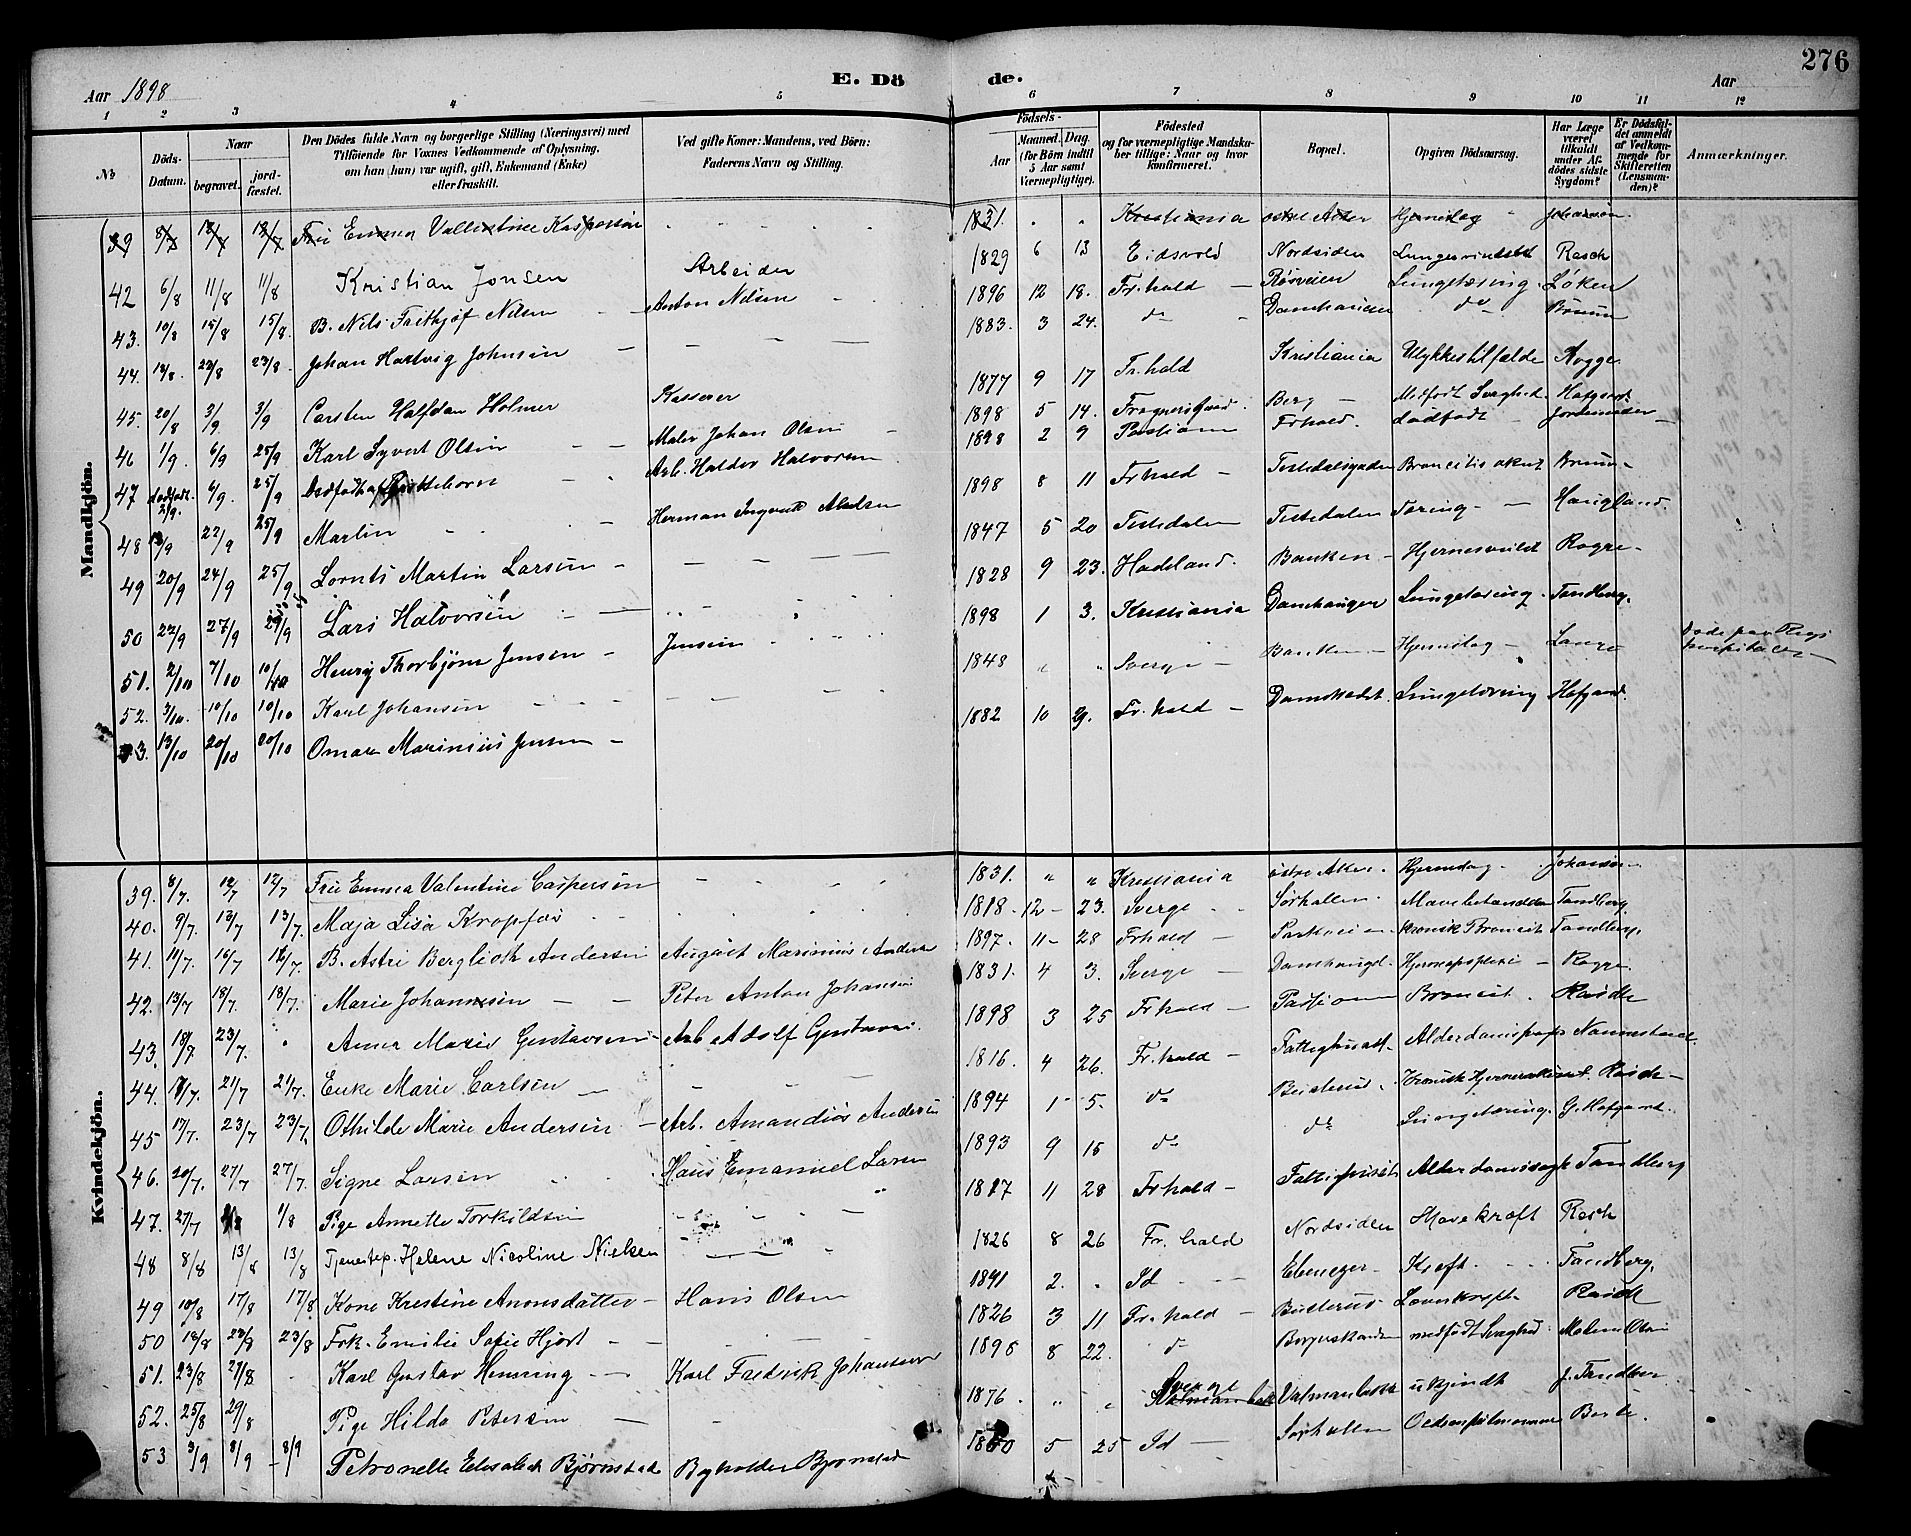 Aar 1898
E. Dö
de.
Aar
276
1 2 3 4 5 6 7 8 9 10 11 12
No
Döds-Datum.
Naar
begravet.
jord-fæstet.
Den Dödes fulde Navn og borgerlige Stilling (Næringsvei) med
Tilföiende for Voxnes Vedkommende af Oplysning,
om han (hun) var ugift, gift, Enkemand (Enke)
eller fraskilt.
Ved gifte Koner: Mandens, ved Börn:
Faderens Navn og Stilling.
Födsels-
Aar
Maaned. Dag.
(for Börn indtil
5 Aar samt
Værnepligtige).
Födested
og for værnepligtige Mandska-
ber tillige: Naar og hvor
konfirmeret.
Bopæl.
Opgiven Dödsaarsag.
Har Læge
været
tilkaldt
under Af-
dödes sidste
Sygdom?
Er Dödsfal-
det anmeldt
af Vedkom-
mende for
Skifteretten
(Lensman-
den)?
Anmærkninger.
Mandkjön.
39 8/7 13/7 13/7 Fru Emma Vallentine Kaspersen 1831. " " Kristiania østre Aker Hjerneslag Johansen
42 6/8 11/8 11/8 Kristian Jonsen Arbeider 1829 6 13 Eidsvold Nordsiden Resch
43. 10/8 15/8 15/8. B. Nils Frithjof Nilsen Anton Nilsen 1896 12 18. Fr.hald Røsveien Lungetæring Løken
44. 18/8. 23/8 23/8. Johan Hartvig Johnsen 1883. 3 24. do Damhaugen do Bruun
45. 20/8 3/9 3/9 Carsten Halfdan Holmer Kasserer 1877 9 17 Fr.hald Kristiania Ulykkestilfælde Rogge
46 1/9. 6/9 25/9 Karl Syvert Olsen Maler Johan Olsen 1898 5 14. Berg Medfødt Svaghed Hofgaard
47 dødfødt 2/9. 6/9. 25/9 Dødfødt Guttebarn Arb. Haldor Halvorsen 1898 2 9 Frhald. Dødfødt Jordemoder
48 13/9 22/9 25/9 Martin Herman Ingvald 1898 8 11 Frhald Tistedalsgaden Broncitis akut Bruun
49 20/9 24/9 25/9 Lornts Martin Larsen 1847 5 20 Tistedalen Tistedalen Tæring Haugland.
50 22/9 27/9 25/9 Lars Halvorsen 1828 9 23. Hadeland. Banken Rogge
51. 2/10 7/10 10/10 Henry Thorbjørn Jensen Jensen 1898 1 3. Kristiania Damhaugen Lungetæring Tandberg.
52. 3/10. 10/10 10/10 Karl Johansen 1848 " " Sverge Banken Hjerneslag Døde paa Rigshospitalet
53. 13/10 20/10 20/10 Omar Marinius Jensen 1882 10 29. Fr.hald Lungetæring Hofgaard.
Kvindekjön.
39. 8/7. 12/7 12/7 Fru Emma Valentine Caspersen 1831. " " Kristiania østre Aker. Hjerneslag Johansen
40. 9/7. 13/7 13/7. Maja Lisa Kropfos 1818. 12 23. Sverge Sørhallen Mavebetændelse Tandberg.
41. 11/7. 16/7 16/7. B. Astri Bergliot Andersen August Marinius Andersen 1897. 11 28 Frhald Parkveien Kronisk Broncit Tandberg.
42. 13/7 18/7 18/7. Marie Johannesen Peter Anton Johansen 1831. 4 3. Sverge Hjerneapoplexi Rogge.
43. 18/7. 23/7. " Anna Marie Gustavsen Arb Adolf Gustavsen. 1898 3 25 Frhald Broncit. Rasch
44. 17/7. 21/7 21/7. Enke Marie Carlsen 1816. 4 26. Fr.hald Fattighuset Alderdomssvaghed Nannestad.
45 17/7. 23/7 23/7. Othilde Marie Andersen Arb. Amandius Andersen 1894 1 5. do Busterud Rasch
46. 20/7. 27/7 27/7. Signe Larsen Hans Emanuel Larsen 1893 9 15 do do Lungetæring. G. Hofgaard.
47. 27/7 1/8 1/8 Pige Annette Torkildsen " 1817 11 28 Frhald Fattighuset Alderdomssvaghed Tandberg
48 8/8 13/8 13/8 Tjenestep. Helene Nicoline Nielsen 1826 8 26 Fr. hald Nordsiden Mavekræft Resch
49 10/8 17/8 17/8 Kone Kristine Amonsdatter Hans Olsen 1841 2. " Id Ebeneger Kræft Tandberg.
50 18/8 23/8 23/8 Frk. Emilie Sofie Hjort 1826 3 11 Fr.hald Busterud Leverkræft Rasch
51. 23/8 27/8 Karl Gustav Henning Karl Fredrick Johansen 1898 8 22. do medfødt Svaghed. Malene Olsen
52. 25/8 29/8 Pige Hilda Petersen 1876. " " Sverge ukjendt J. Tandberg
53 3/9 8/9 8/9 Petronelle Elisabeth Bjørnstad Byfoldes Bjørnstad 1860 5 25 Id Sørhallen